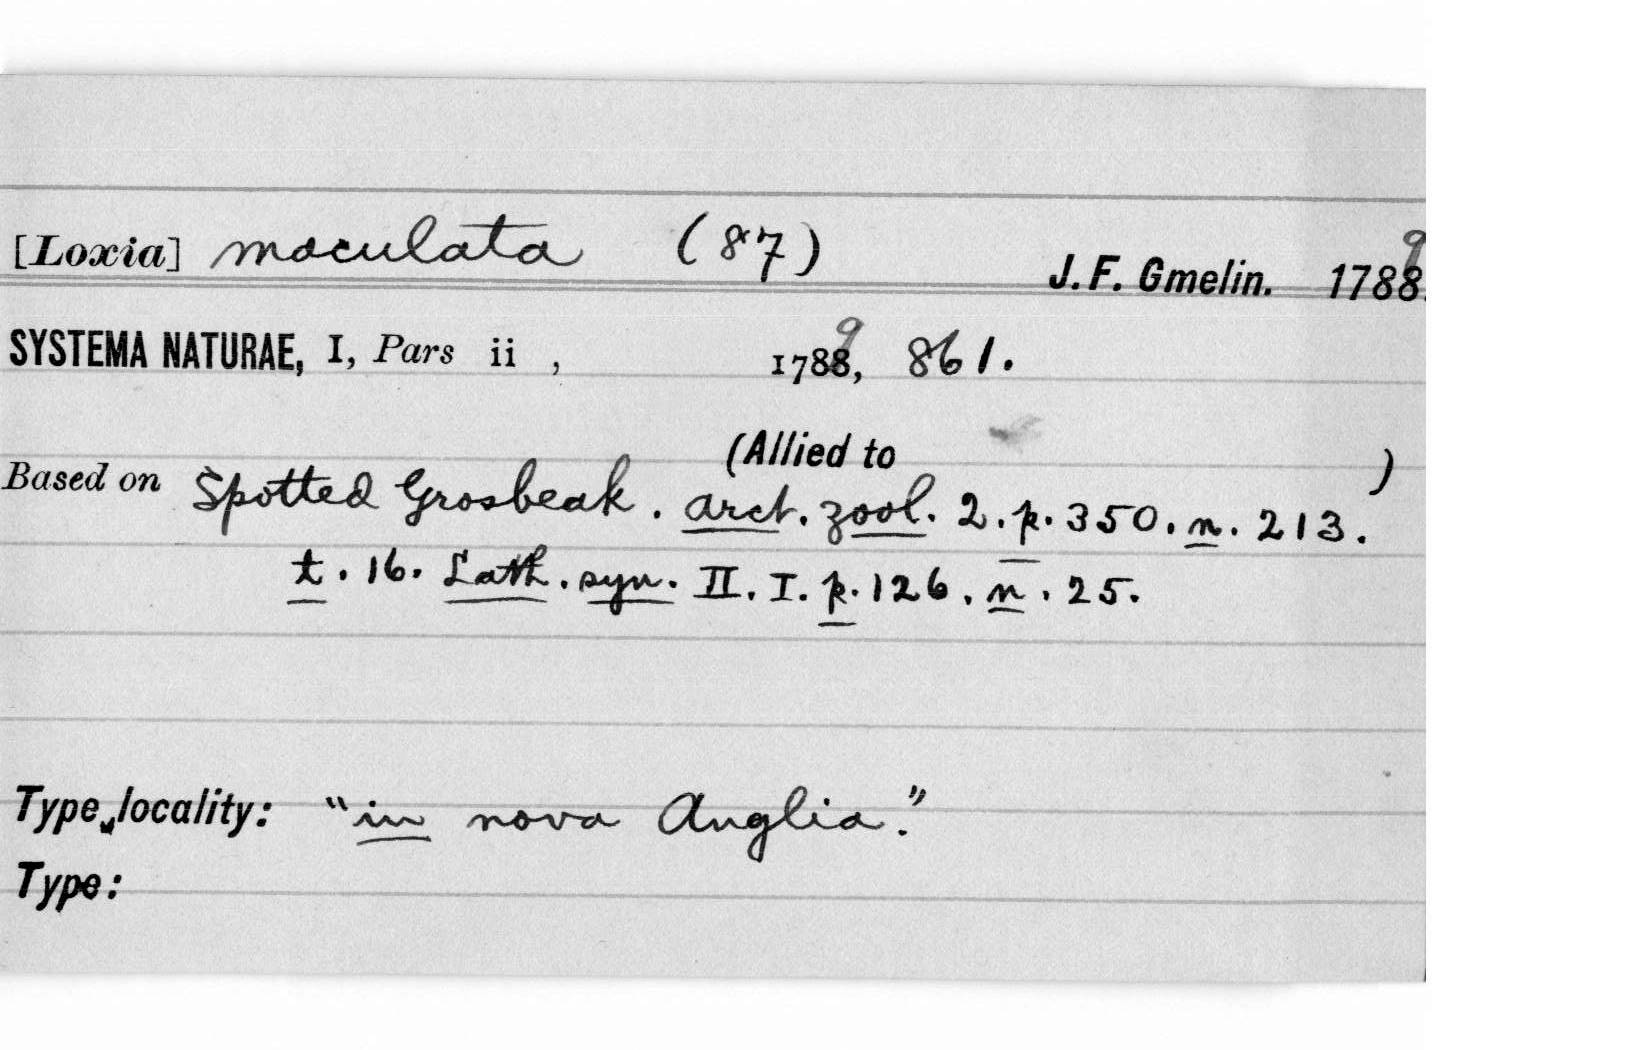 [Loxia] maculata (87) J. F. Gmelin. 1789
SYSTEMA NATURAE, I, Pars ii , 1789, 861.
(Allied to )
Based on Spotted Grosbeak. Arct. zool. 2. p. 350. n. 213.
t. 16. Lath. syn. II. I. p. 126. n. 25.
Type locality: "in nova Anglia."
Type: